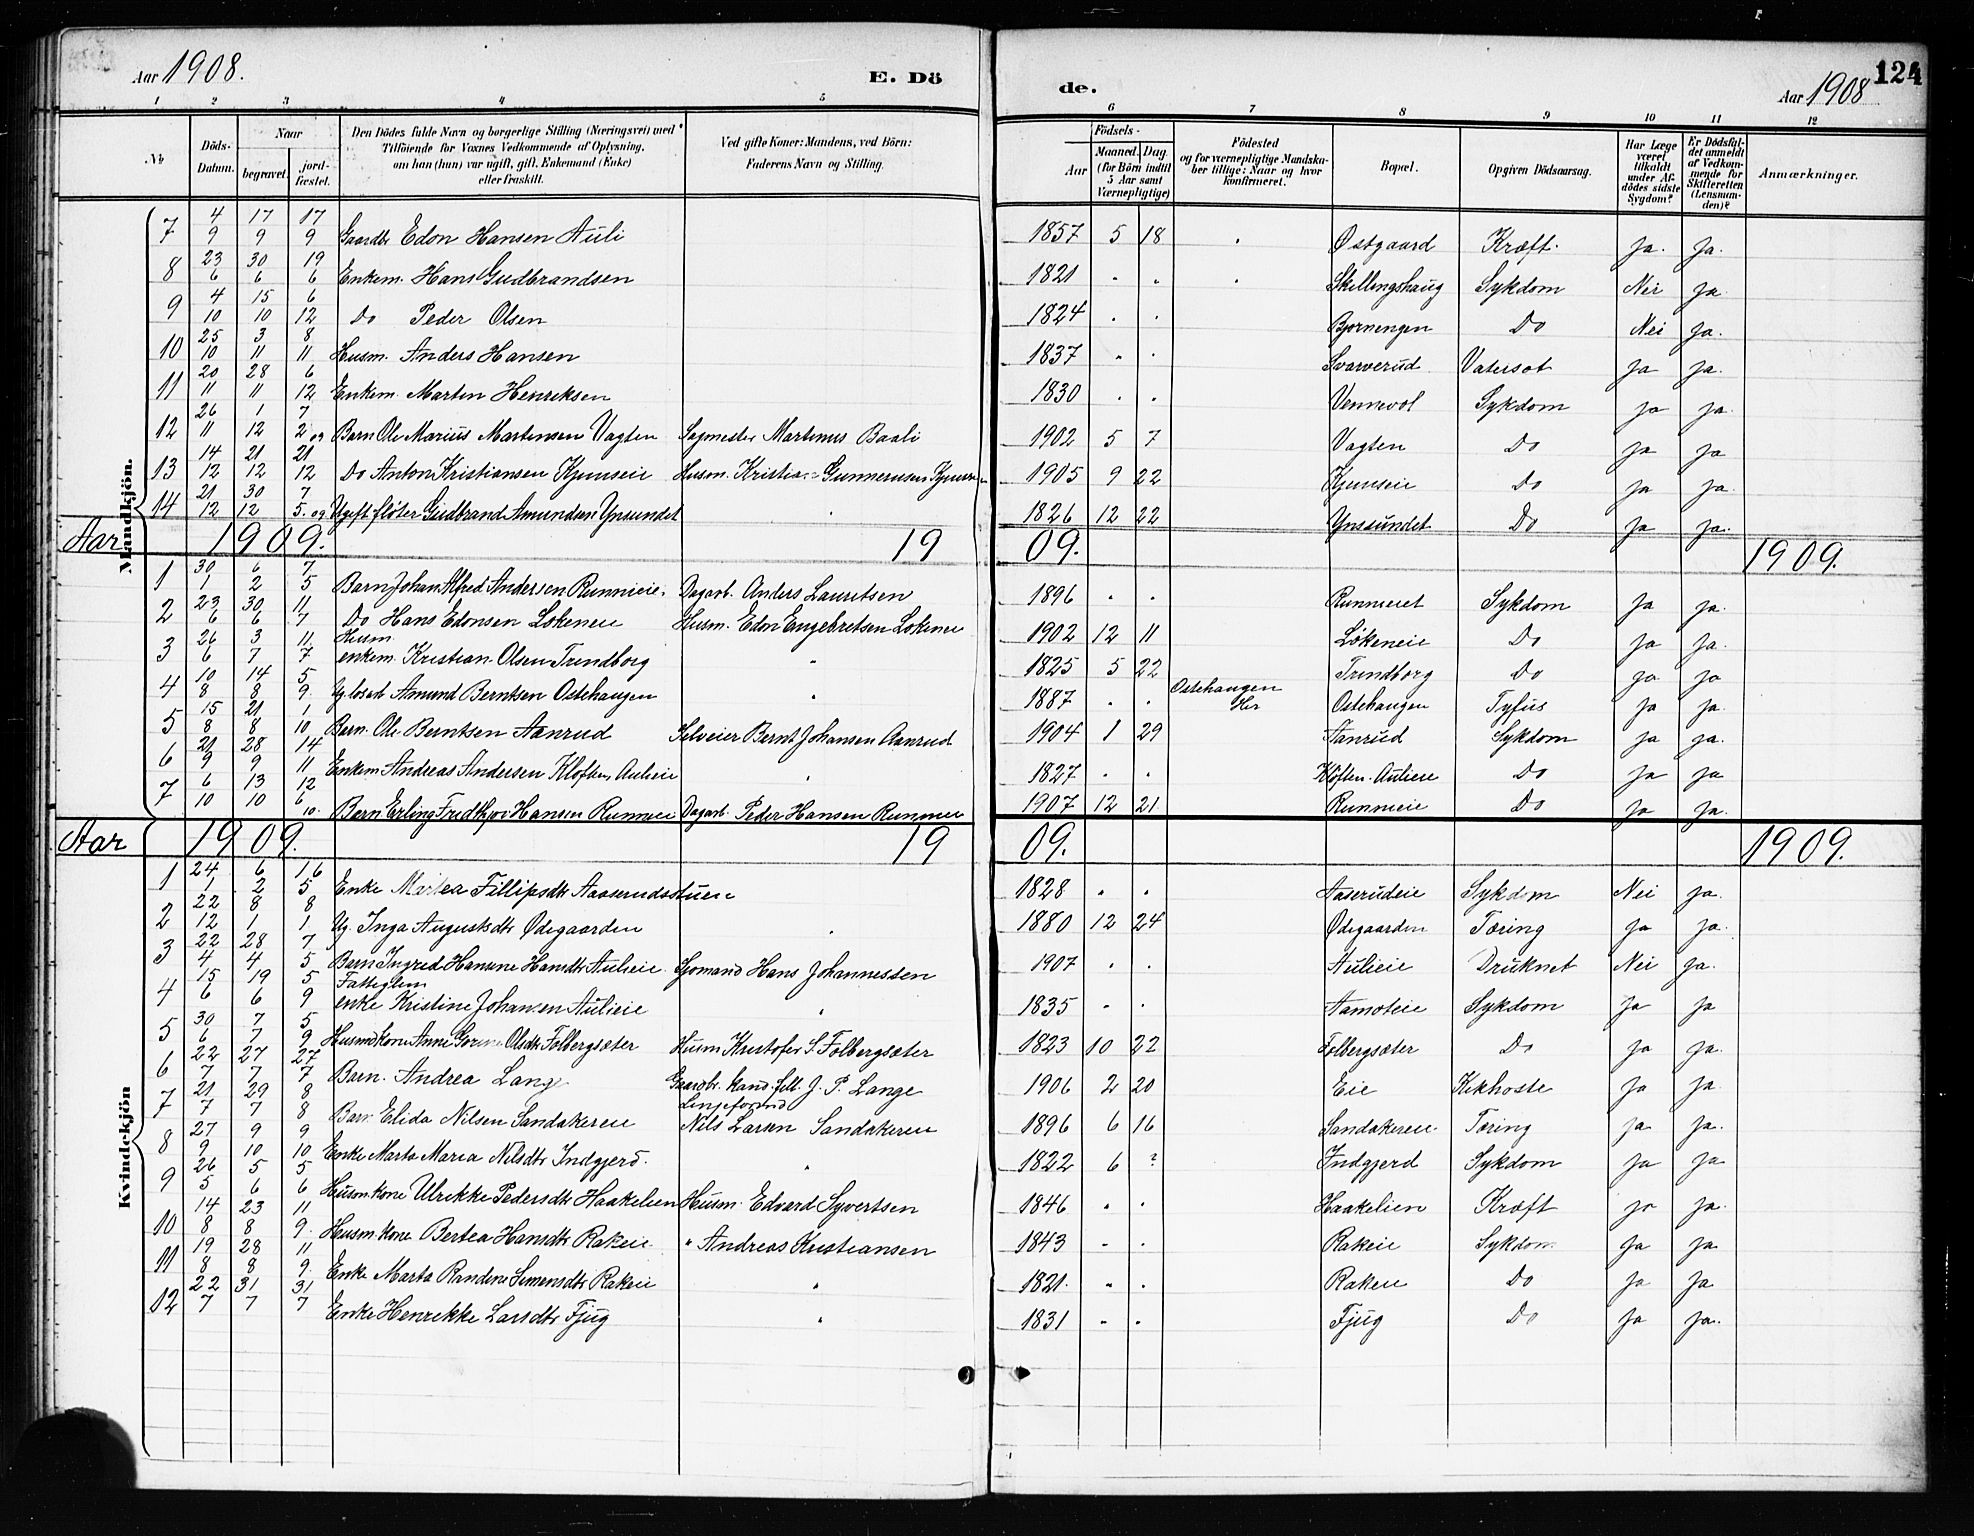 Aar 1908. E. Dö
de. Aar 1908 124
1 2 3 4 5 6 7 8 9 10 11 12
No Döds-Datum. Naar begravet. jord-fæstet. Den Dödes fulde Navn og borgerlige Stilling (Næringsvei) med Tilföiende for Voxnes Vedkommende af Oplysning, om han (hun) var ugift, gift, Enkemand (Enke) eller fraskilt. Ved gifte Koner: Mandens, ved Börn: Faderens Navn og Stilling. Födsels- Aar Maaned. Dag. (for Börn indtil 5 Aar samt Værnepligtige) Födested og for værnepligtige Mandskaber tillige: Naar og hvor konfirmeret. Bopæl. Opgiven Dödsaarsag. Har Læge været tilkaldt under Afdödes sidste Sygdom? Er Dödsfaldet anmeldt af Vedkommende for Skifteretten (Lensmanden)? Anmærkninger.
Mandkjön.
7 4/9 17/9 17/9 Gaardbr Edon Hansen Auli 1857 5 18 Østgaard Kræft. Ja. Ja.
8 23/6 30/6 19/6 Enkem. Hans Gudbrandsen 1821 Skellingshaug Sykdom Nei Ja
9 4/10 15/10 6/12 Do Peder Olsen 1824 Bjornengen Do Nei Ja.
10 25/10 3/11 8/11 Husm. Anders Hansen 1837 Svarverud Vatersot Ja Ja.
11 20/11 28/11 6/12 Enkem. Marten Henriksen 1830 Vennevol Sykdom Ja Ja.
12 26/11 1/12 7/2 09 Barn Ole Marius Martinsen Vagten Sagmester Martinus Baali 1902 5 7 Vagten Do Ja Ja
13 14/12 21/12 21/12 Do Anton Kristiansen Kjunseie Husm. Kristian Gunnerusen 1905 9 22 Kjunseie Do Ja Ja.
14 21/12 30/12 7/5. 09 Ugift fløter Gudbrand Amundsen Ynsundet 1826 12 22 Ynssundet Do Ja Ja.
Aar 1909. 19 09. 1909.
1 30/1 6/2 7/5 Barn Johan Alfred Andersen Runnieie. Dagarb. Anders Lauritsen 1896 Runnieiet Sykdom Ja Ja.
2 23/6 30/6 11/7 Do Hans Edonsen Løkeneie Husm. Edon Engebretsen Løkenei 1902 12 11 Løkeneie Do Ja Ja.
3 26/6 3/7 11/7 Husm. enkem. Kristian Olsen Trendborg 1825 5 22 Trendborg Do Ja Ja
4 10/8 14/8 5/9. Ug. losarb Amund Berntsen Ostehaugen 1887 Ostehaugen Her Ostehaugen Tyfus Ja Ja.
5 15/8 21/8 1/10 Barn. Ole Berntsen Aanrud Selveier Bernt Johansen Aanrud 1904 1 29 Aanrud Sykdom Ja Ja.
6 21/9 28/9 14/11 Enkem Andreas Andersen Kløften, Aulieie 1827 Kløften. Aulieie Do Ja Ja
7 6/10 13/10 12/6 10. Barn Erling Fridthjov Hansen Runnieie Dagarb. Peder Hansen Runnieie 1907 12 21 Runnieie Do Ja Ja.
Aar 1909. 19 09. 1909.
Kvindekjön
1 24/1 6/2 16/5 Enke Martea Fillipsdtr Aaserudstuen 1828 Aaserudeie Sykdom Nei Ja.
2 22/12 8/1 8/1 Ug. Inga Augustsdtr Ødegaarden 1880 12 24 Ødegaarden Tæring Ja Ja.
3 22/4 28/4 7/5 Barn Ingred Hansine Hansdtr Aulieie. Sjomand Hans Johannessen 1907 Aulieie Druknet Nei Ja.
4 15/6 19/6 5/9 Fattiglem enke Kristine Johansen Aulieie 1835 Aamoteie Sykdom Ja Ja
5 30/6 7/7 5/9 Husmdkone Anne Olsdtr Folbergsæter Husm Kristofer S. Folbergsæter 1823 10 22 Folbergsæter Do Ja Ja.
6 22/7 27/7 27/7 Barn. Andrea Lange Gaardbr. kand. fill. J. P. Lange 1906 2 20 Eie Kikhoste Ja Ja
7 21/7 29/7 8/8 Barn Elida Nilsen Sandakereie Linjeformd Nils Larsen Sandakereie 1896 6 16 Sandakereie Tæring Ja Ja.
8 27/9 9/10 9/10 Enke Marta Maria Nilsdtr Indgjerd. 1822 6 ? Indgjerd Sykdom Ja Ja
9 26/5 5/6 5/6 Husmkone Ulrikke Pedersdtr Haakelien Husm. Edvard Syvertsen 1846 Haakelien Kræft Ja Ja.
10 14/8 23/8 11/9. Husmkone Bertea Hansdtr Rakeie " Andreas Kristiansen 1843 Rakeie Sykdom Ja Ja
11 19/8 28/8 11/9. Enke Marta Randine Simensdtr Rakeie 1821. Rakeie Do Ja Ja
12 22/7 31/7 31/7 Enke Henrikke Larsdtr Fjug 1831 Fjug Do Ja Ja.